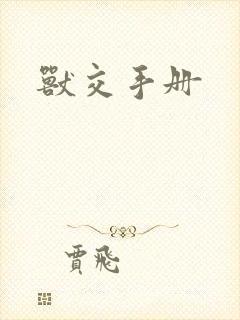 獸交手册
賈飛